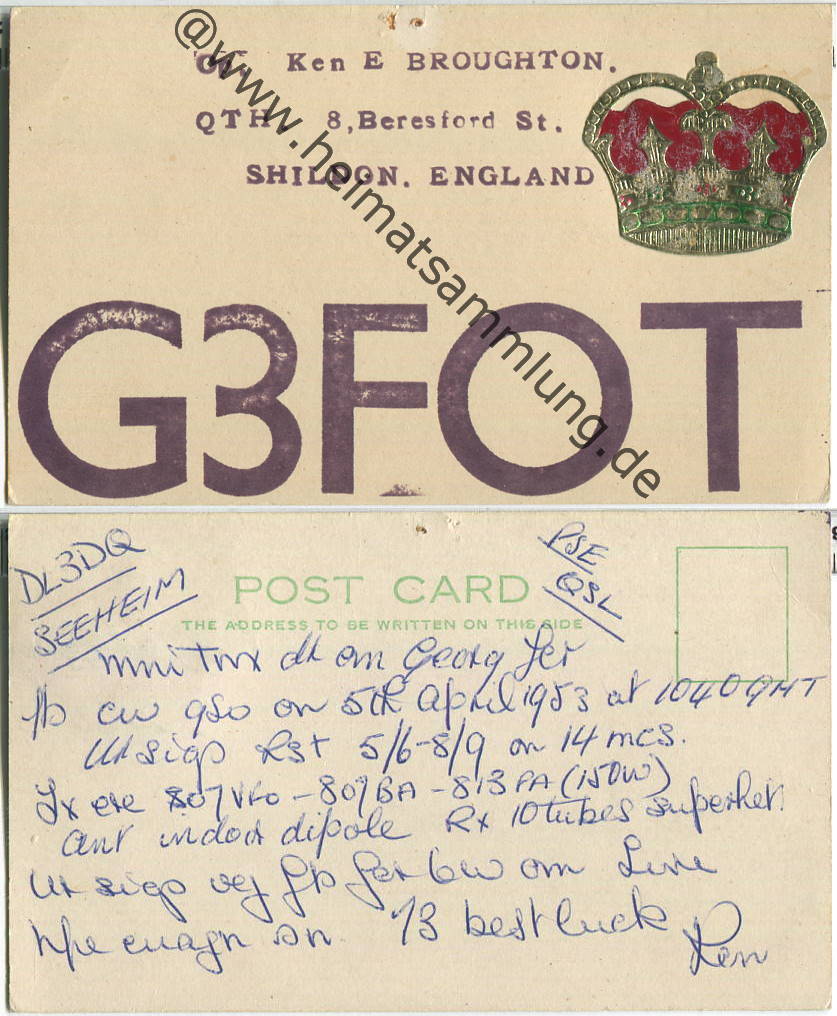 OP. Ken E BROUGHTON.
QTH. 8,Beresford St.
SHILDON. ENGLAND
G3FOT
@www.heimatsammlung.de
DL3DQ
SEEHEIM
PSE
QSL
POST CARD
THE ADDRESS TO BE WRITTEN ON THIS SIDE
mni Tnx dr om Georg fer
fb cw qso on 5th April 1953 at 1040 GMT
Ur sigs Rst 5/6-8/9 on 14 mcs.
Tx ere 807 VFO - 807 BA - 813 PA (150W)
Ant indoor dipole Rx 10 tubes superhet.
Ur sigs fb fer 6w om
hpe cuagn sn. 73 best luck
Ken